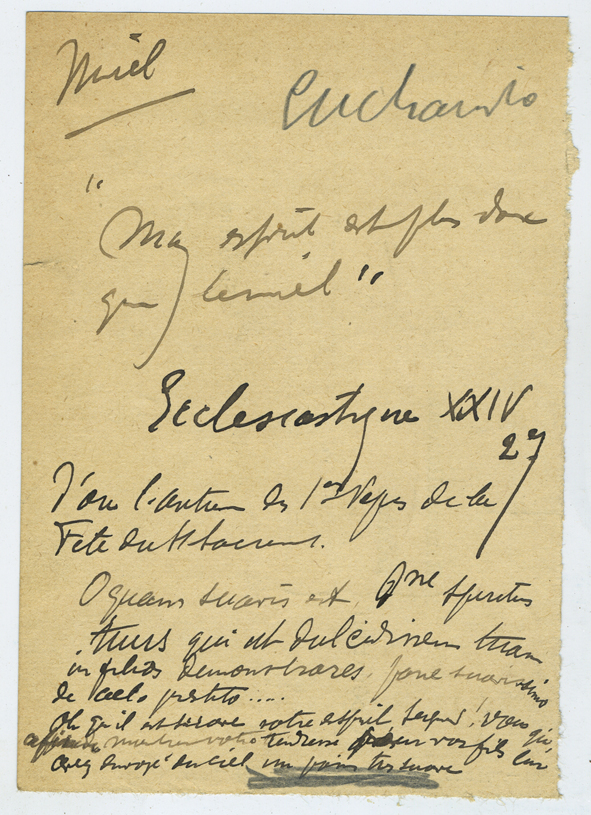 Miel
Eucharistie
"
Mon esprit est plus doux
que le miel"
Ecclesiastique XXIV
27
D'où l'antienne des 1res Vêpres de la
Fête du St Sacrement.
O quam suavis est, Dne spiritus
tuus qui ut dulcedinem tuam
in filios demonstrares, pane suavissimo
de caelo praestito.....
Oh qu'il est suave votre esprit Seigneur! Vous qui,
afin de montrer votre tendresse pour vos fils leur
avez envoyé du ciel un pain très suave